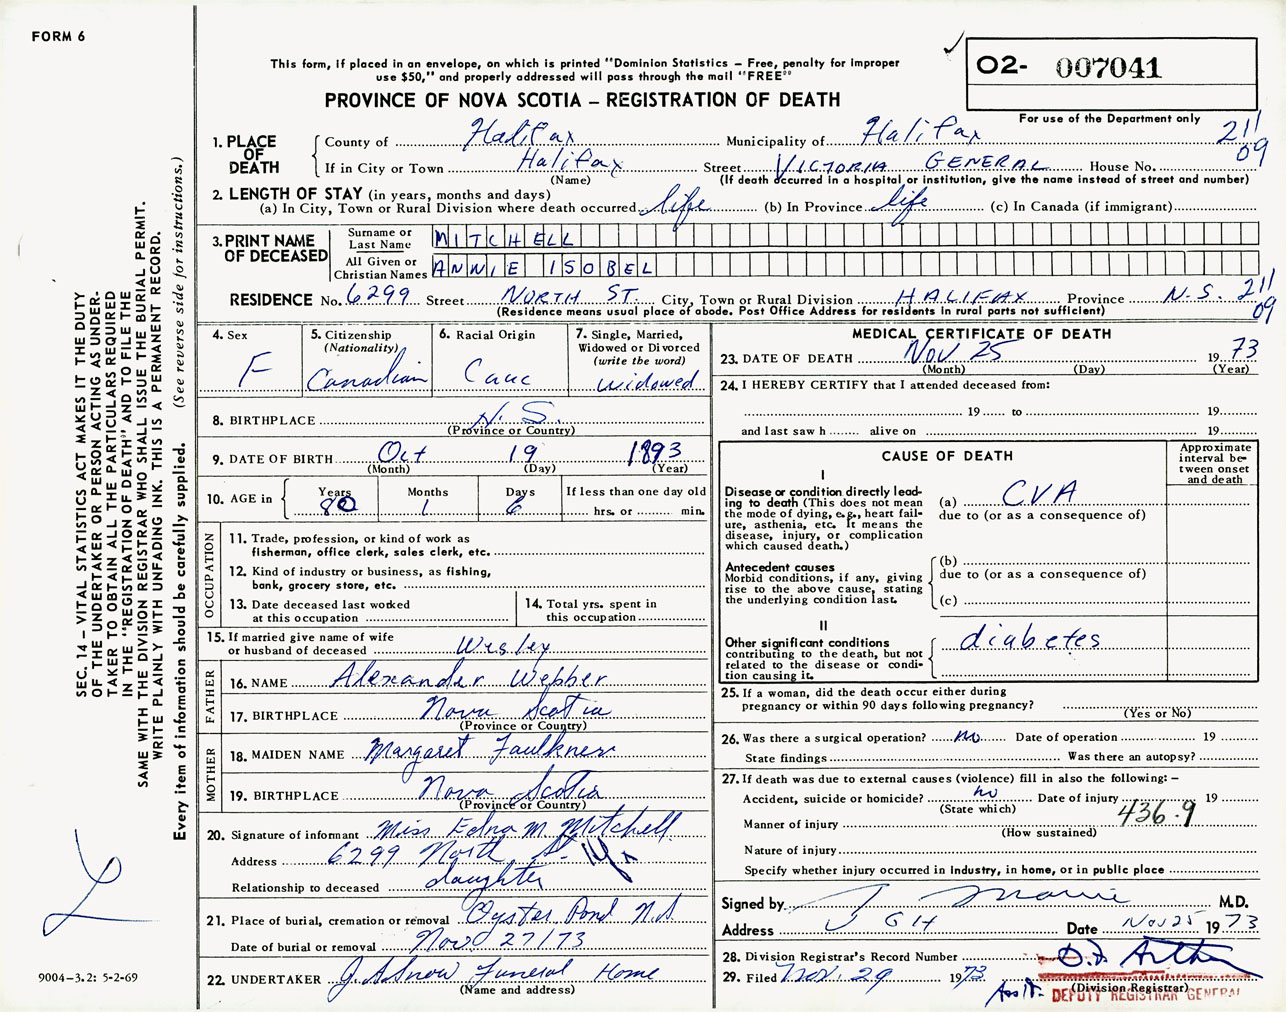 FORM 6
This form, if placed in an envelope, on which is printed "Dominion Statistics – Free, penalty for improper
use $50," and properly addressed will pass through the mail "FREE"
PROVINCE OF NOVA SCOTIA – REGISTRATION OF DEATH
O2- 007041
For use of the Department only
1. PLACE OF DEATH
County of Halifax Municipality of Halifax 211
09
If in City or Town Halifax Street VICTORIA GENERAL House No.
(Name) (If death occurred in a hospital or institution, give the name instead of street and number)
2. LENGTH OF STAY (in years, months and days)
(a) In City, Town or Rural Division where death occurred life (b) In Province life (c) In Canada (if immigrant)
3. PRINT NAME OF DECEASED
Surname or Last Name MITCHELL
All Given or Christian Names ANNIE ISOBEL
RESIDENCE No. 6299 Street NORTH ST. City, Town or Rural Division HALIFAX Province N.S. 211
09
(Residence means usual place of abode. Post Office Address for residents in rural parts not sufficient)
4. Sex
F
5. Citizenship
(Nationality)
Canadian
6. Racial Origin
Cauc
7. Single, Married,
Widowed or Divorced
(write the word)
widowed
8. BIRTHPLACE N.S.
(Province or Country)
9. DATE OF BIRTH Oct 19 1893
(Month) (Day) (Year)
10. AGE in
Years Months Days If less than one day old
80 1 6 hrs. or min.
OCCUPATION
11. Trade, profession, or kind of work as
fisherman, office clerk, sales clerk, etc.
12. Kind of industry or business, as fishing,
bank, grocery store, etc.
13. Date deceased last worked
at this occupation
14. Total yrs. spent in
this occupation
15. If married give name of wife
or husband of deceased Wesley
FATHER
16. NAME Alexander Webber
17. BIRTHPLACE Nova Scotia
(Province or Country)
MOTHER
18. MAIDEN NAME Margaret Faulkner
19. BIRTHPLACE Nova Scotia
(Province or Country)
20. Signature of informant Miss Edna M. Mitchell
Address 6299 North St. Hfx
Relationship to deceased daughter
21. Place of burial, cremation or removal Oyster Pond N.S
Date of burial or removal Nov 27/73
22. UNDERTAKER J.A. Snow Funeral Home
(Name and address)
MEDICAL CERTIFICATE OF DEATH
23. DATE OF DEATH Nov 25 1973
(Month) (Day) (Year)
24. I HEREBY CERTIFY that I attended deceased from:
19 to 19
and last saw h alive on 19
CAUSE OF DEATH
Approximate
interval be-
tween onset
and death
I
Disease or condition directly lead-
ing to death (This does not
mean the mode of dying, e.g., heart fail-
ure, asthenia, etc. It means the
disease, injury, or complication
which caused death.)
(a) CVA
due to (or as a consequence of)
Antecedent causes
Morbid conditions, if any, giving
rise to the above cause, stating
the underlying condition last.
(b)
due to (or as a consequence of)
(c)
II
Other significant conditions
contributing to the death, but not
related to the disease or condi-
tion causing it.
diabetes
25. If a woman, did the death occur either during
pregnancy or within 90 days following pregnancy?
(Yes or No)
26. Was there a surgical operation? no Date of operation 19
State findings Was there an autopsy?
27. If death was due to external causes (violence) fill in also the following: –
Accident, suicide or homicide? no Date of injury 19
(State which) 436.9
Manner of injury
(How sustained)
Nature of injury
Specify whether injury occurred in industry, in home, or in public place
Signed by M.D.
Address V G H Date Nov 25 1973
28. Division Registrar's Record Number
29. Filed Nov. 29 1973
(Division Registrar)
Ass't- DEPUTY REGISTRAR GENERAL
SEC. 14 – VITAL STATISTICS ACT MAKES IT THE DUTY
OF THE UNDERTAKER OR PERSON ACTING AS UNDER-
TAKER TO OBTAIN ALL THE PARTICULARS REQUIRED
IN THE "REGISTRATION OF DEATH" AND TO FILE THE
SAME WITH THE DIVISION REGISTRAR WHO SHALL ISSUE THE BURIAL PERMIT.
WRITE PLAINLY WITH UNFADING INK. THIS IS A PERMANENT RECORD.
Every item of information should be carefully supplied. (See reverse side for instructions.)
9004-3.2: 5-2-69